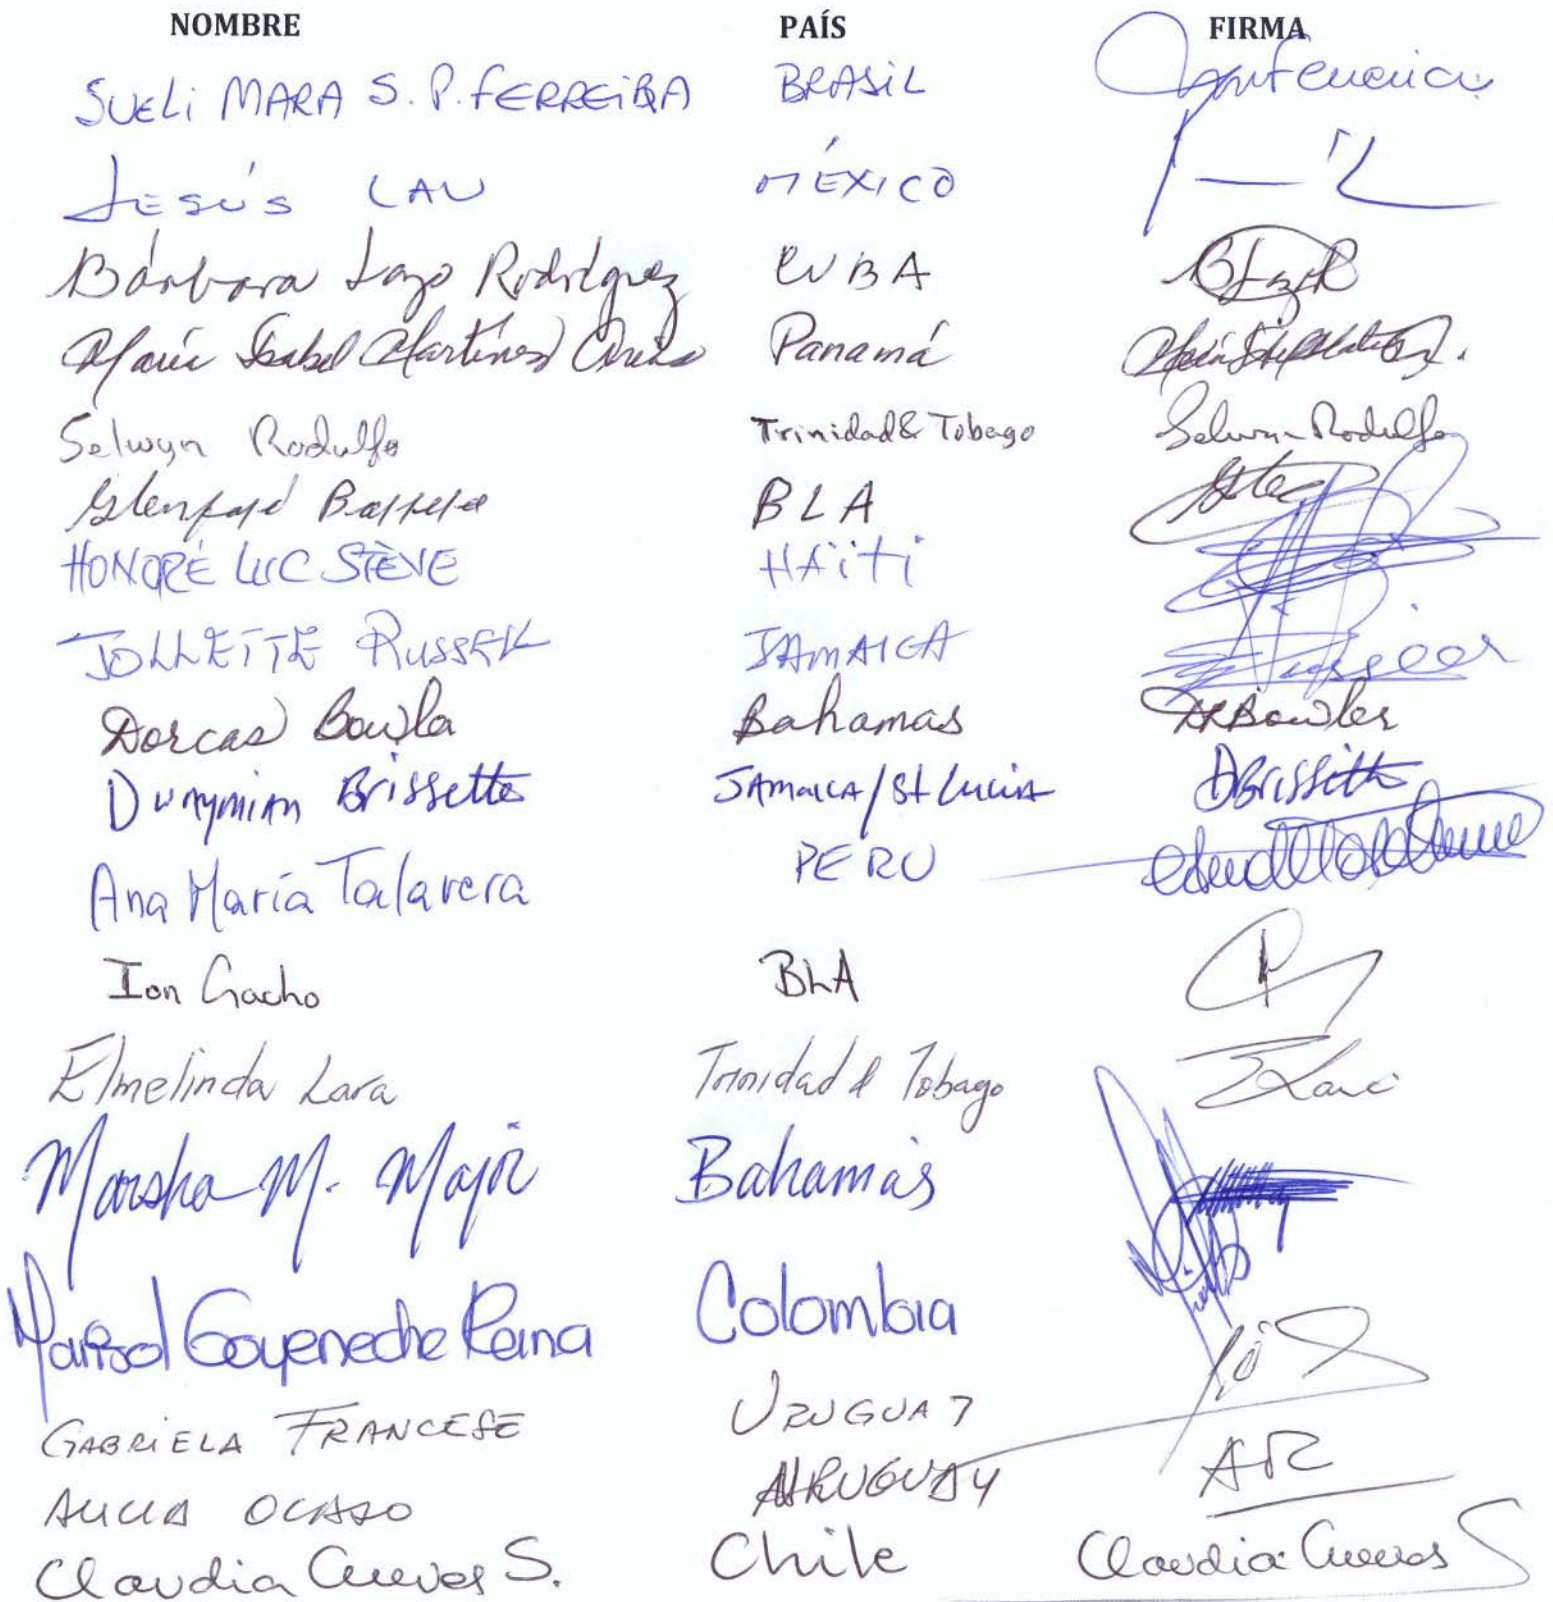 NOMBRE PAÍS FIRMA
SUELI MARA S. P. FERREIRA BRASIL
JESÚS LAU MÉXICO
Bárbara Lazo Rodríguez CUBA
María Isabel Martínez Panamá
Selwyn Rodulfo Trinidad & Tobago Selwyn Rodulfo
BLA
HONORÉ LUC STÈVE HAïTi
JOLLETTE RUSSELL JAMAICA
Dorcas Bowler Bahamas Bowler
Brissette JAMAICA/St Lucia DBrissette
Ana María Talavera PERU
Ion Gacho BLA
Elmelinda Lara Trinidad & Tobago ELara
Marsha M. Major Bahamas
Marisol Goyeneche Reina Colombia
GABRIELA FRANCESE URUGUAY
ALICIA OCASO URUGUAY
Claudia Cuevas S. Chile Claudia Cuevas S